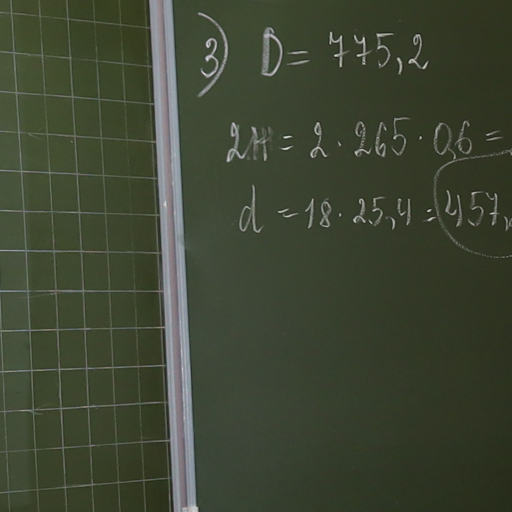 3) D = 775,2
2H = 2 · 265 · 0,6 =
d = 18 · 25,4 = 457,